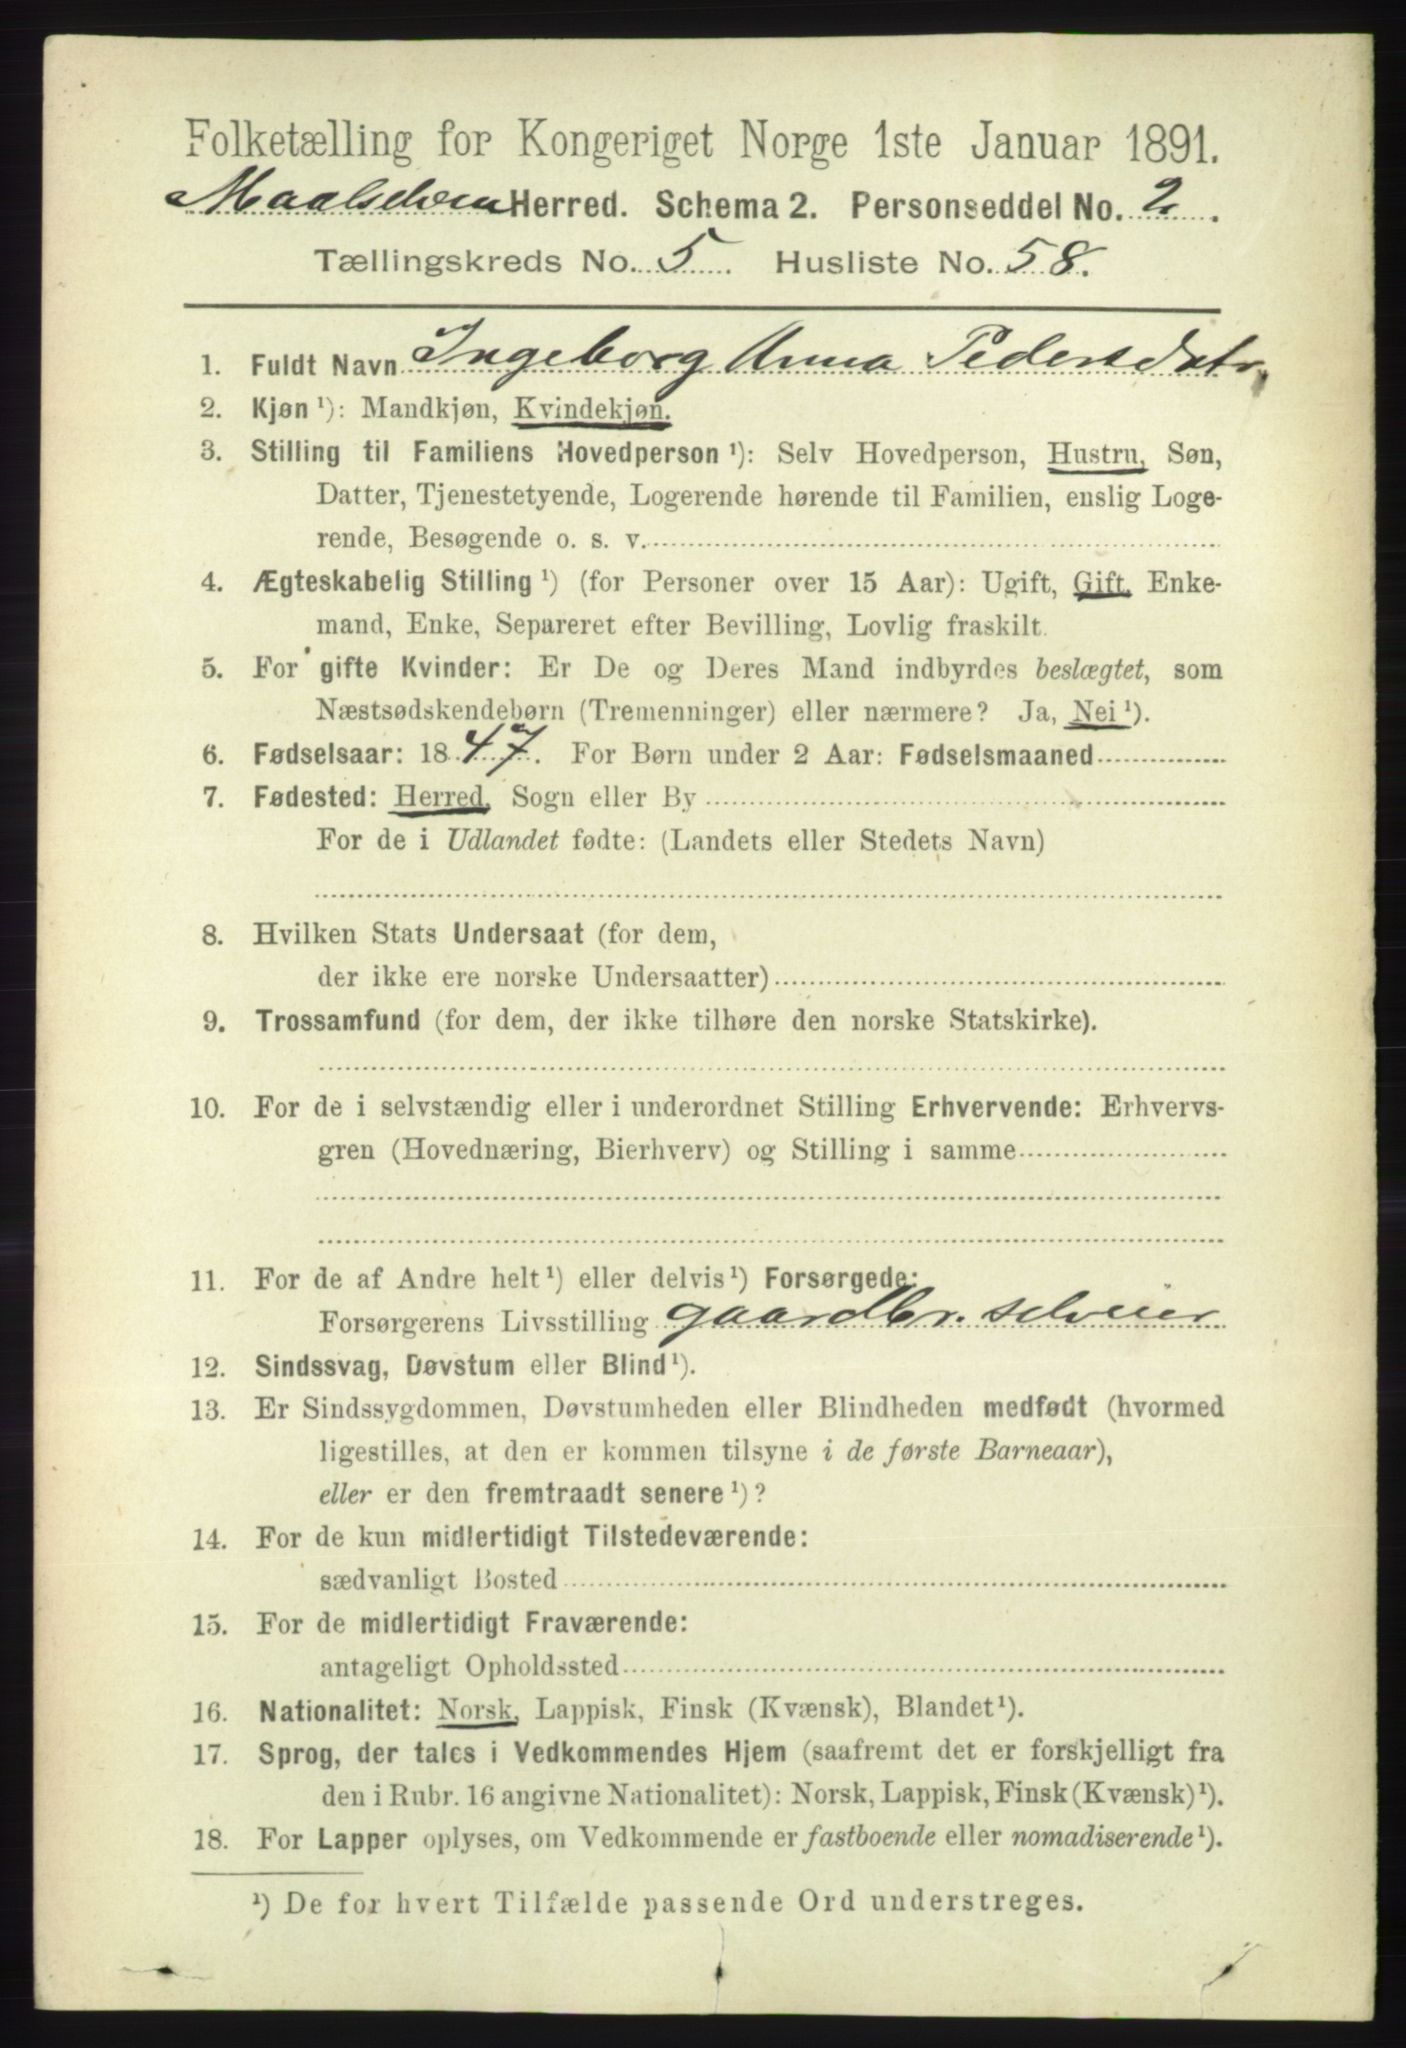 Folketælling for Kongeriget Norge 1ste Januar 1891.
Maalselven Herred. Schema 2. Personseddel No. 2.
Tællingskreds No. 5. Husliste No. 58.
1. Fuldt Navn Ingeborg Anna Pedersdatr
2. Kjøn ¹): Mandkjøn, Kvindekjøn.
3. Stilling til Familiens Hovedperson ¹): Selv Hovedperson, Hustru, Søn,
Datter, Tjenestetyende, Logerende hørende til Familien, enslig Loge-
rende, Besøgende o. s. v.
4. Ægteskabelig Stilling ¹) (for Personer over 15 Aar): Ugift, Gift, Enke-
mand, Enke, Separeret efter Bevilling, Lovlig fraskilt.
5. For gifte Kvinder: Er De og Deres Mand indbyrdes beslægtet, som
Næstsødskendebørn (Tremenninger) eller nærmere? Ja, Nei ¹).
6. Fødselsaar: 1847. For Børn under 2 Aar: Fødselsmaaned
7. Fødested: Herred, Sogn eller By
For de i Udlandet fødte: (Landets eller Stedets Navn)
8. Hvilken Stats Undersaat (for dem,
der ikke ere norske Undersaatter)
9. Trossamfund (for dem, der ikke tilhøre den norske Statskirke).
10. For de i selvstændig eller i underordnet Stilling Erhvervende: Erhvervs-
gren (Hovednæring, Bierhverv) og Stilling i samme
11. For de af Andre helt ¹) eller delvis ¹) Forsørgede:
Forsørgerens Livsstilling gaardbr. selveier
12. Sindssvag, Døvstum eller Blind ¹).
13. Er Sindssygdommen, Døvstumheden eller Blindheden medfødt (hvormed
ligestilles, at den er kommen tilsyne i de første Barneaar),
eller er den fremtraadt senere ¹)?
14. For de kun midlertidigt Tilstedeværende:
sædvanligt Bosted
15. For de midlertidigt Fraværende:
antageligt Opholdssted
16. Nationalitet: Norsk, Lappisk, Finsk (Kvænsk), Blandet ¹).
17. Sprog, der tales i Vedkommendes Hjem (saafremt det er forskjelligt fra
den i Rubr. 16 angivne Nationalitet): Norsk, Lappisk, Finsk (Kvænsk) ¹).
18. For Lapper oplyses, om Vedkommende er fastboende eller nomadiserende ¹).
¹) De for hvert Tilfælde passende Ord understreges.